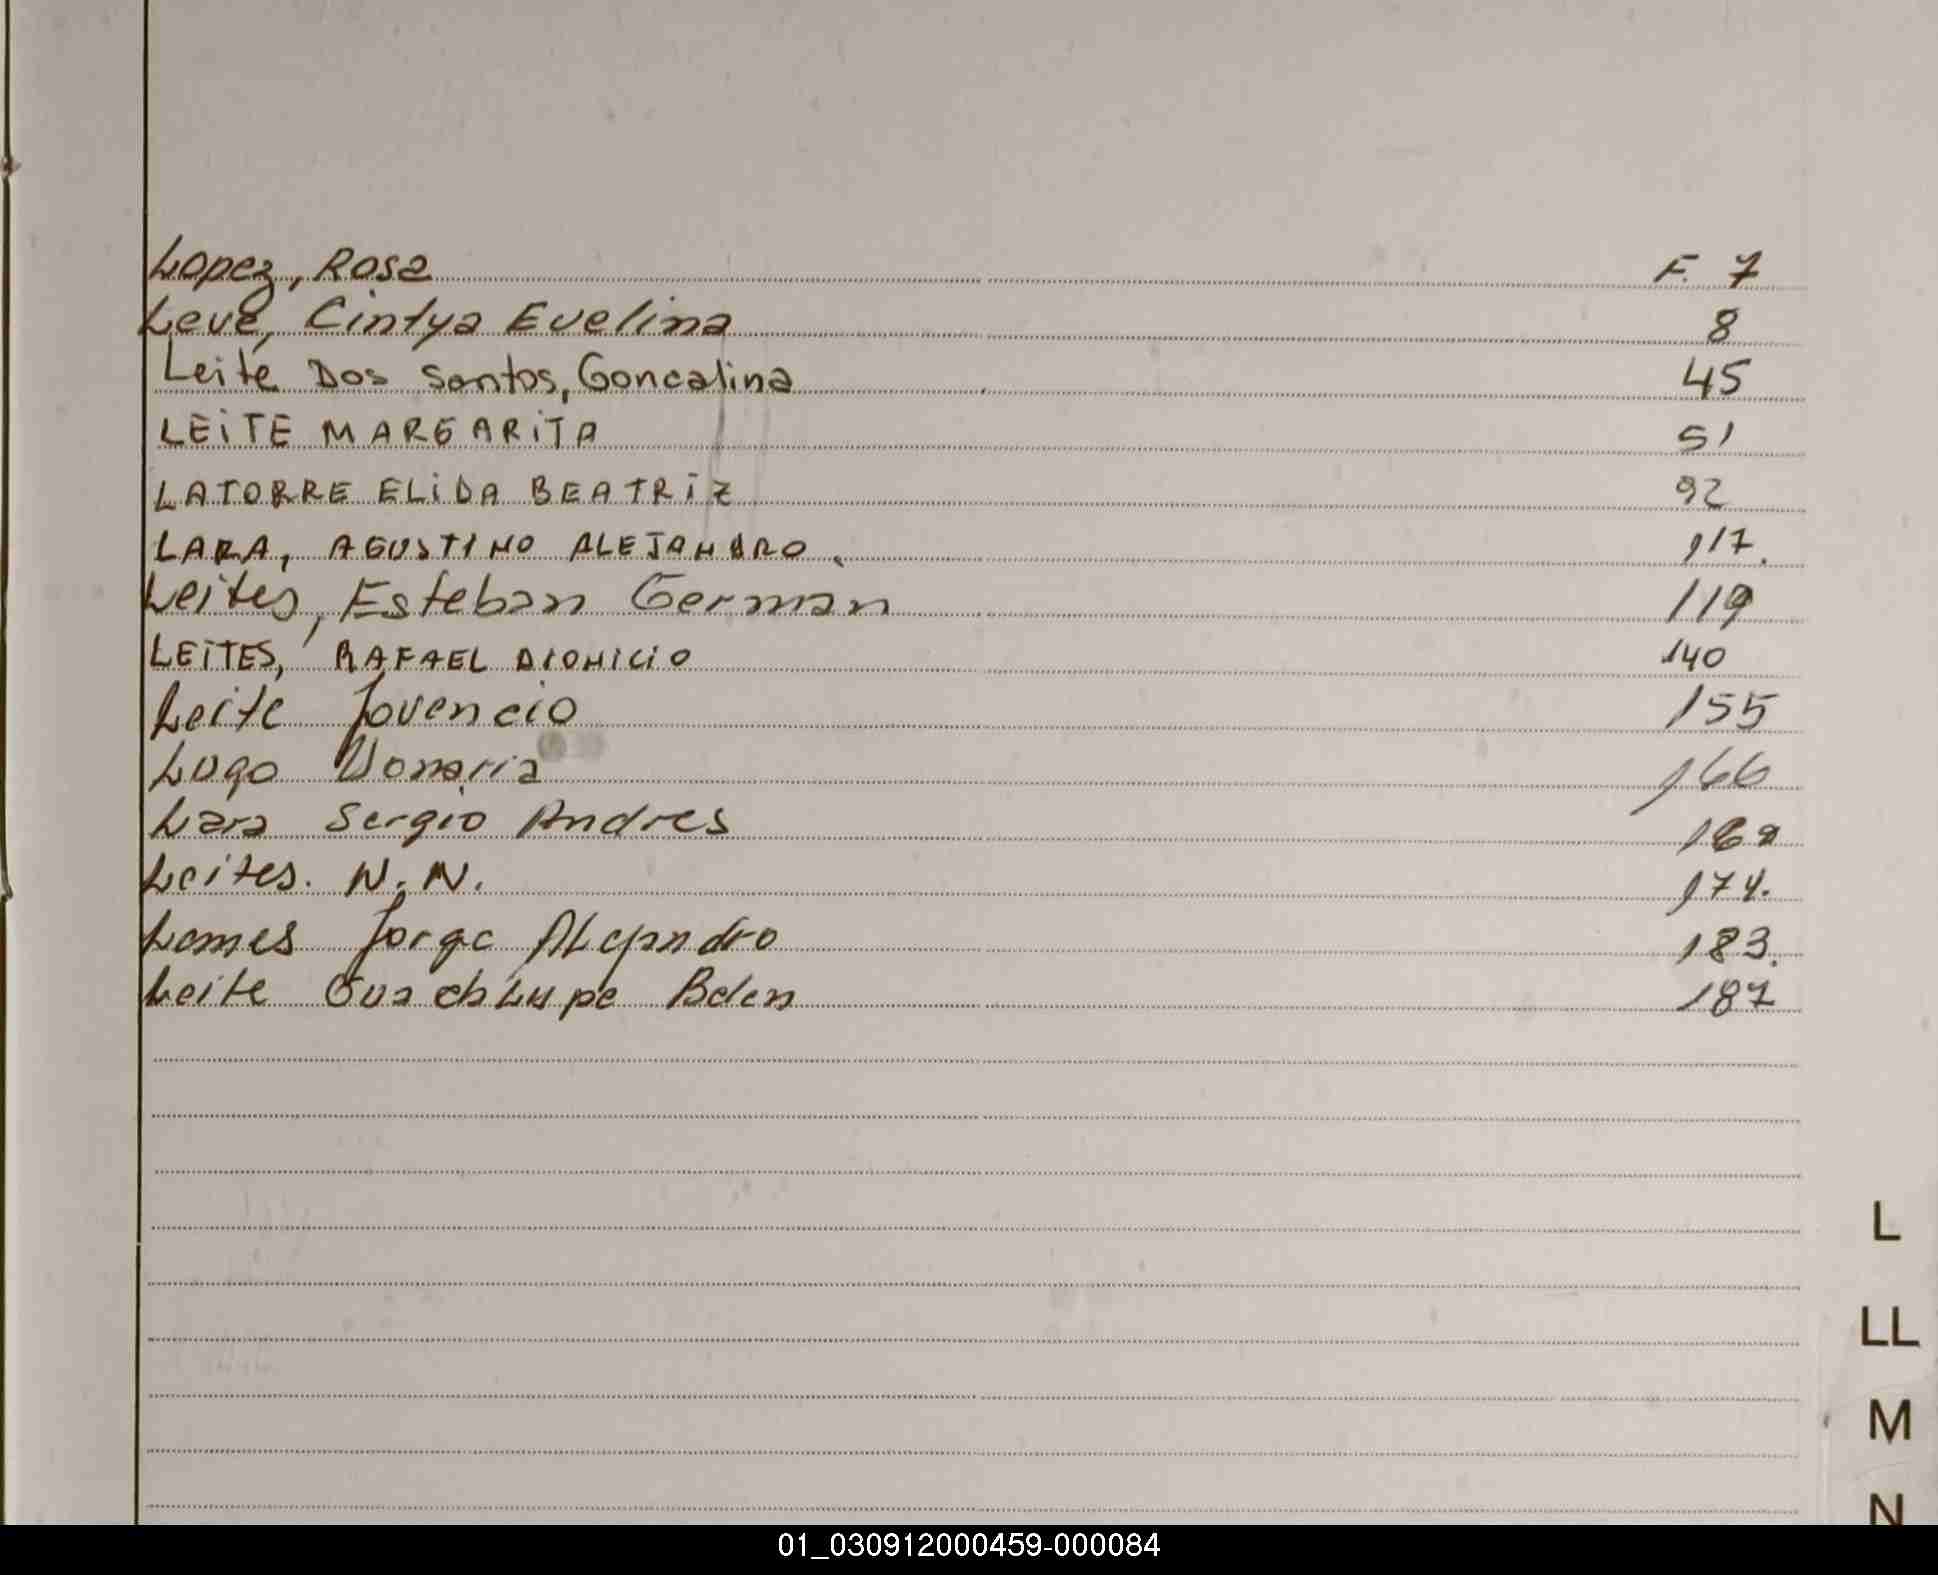 Lopez, Rosa F. 7
Leve, Cintya Evelina 8
Leite Dos Santos, Goncalina 45
LEiTE MARGARiTA 51
LATORRE ELiDA BEATRiZ 92
LARA, AGUSTINO ALEJANDRO. 117.
Leites, Esteban German 119
LEiTES, RAFAEL DIONICIO 140
Leite Jovencio 155
Lugo 166
Lara Sergio Andres
Leites. N.N. 174.
Lemes Jorge ALejandro 183.
Leite GuadaLupe Belen 187
L
LL
M
N
01_030912000459-000084